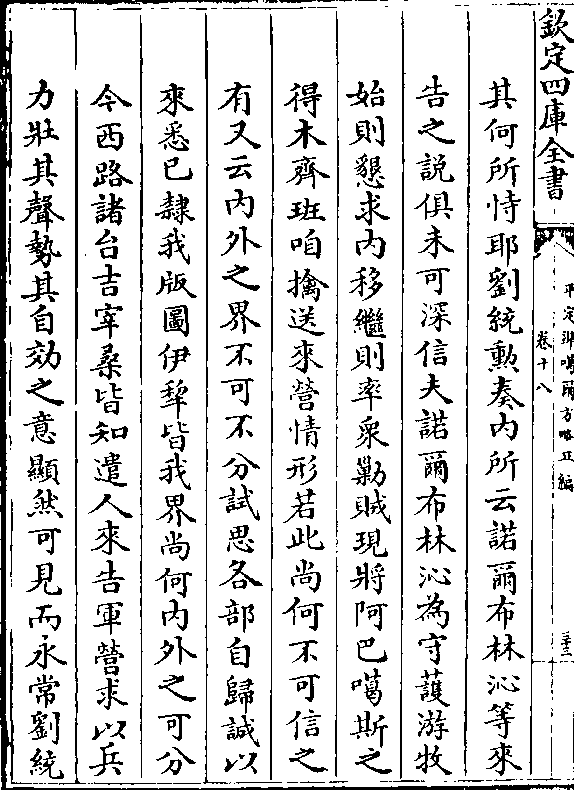 欽定四庫全書
平定準噶爾方略正編
卷十八
三十三
其何所恃耶劉統勲奏内所云諾爾布林沁等來
告之説俱未可深信夫諾爾布林沁為守䕶游牧
始則懇求内移繼則率衆勦賊現將阿巴噶斯之
得木齊班咱擒送來營情形若此尚何不可信之
有又云内外之界不可不分試思各部自歸誠以
來悉已隸我版圖伊犂皆我界尚何内外之可分
今西路諸台吉宰桑皆知遣人來告軍營求以兵
力壯其聲勢其自効之意顯然可見而永常劉統